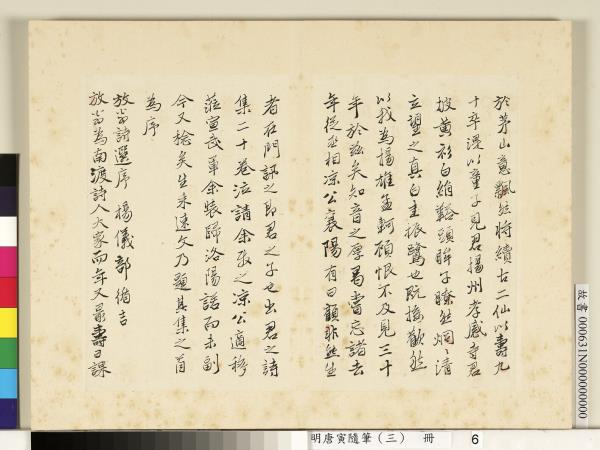 於茅山意飄然將續古二仙以壽九
十卒漫以童子見君揚州孝感寺君
披黄衫白絹鞈頭眸子瞭然烱〻清
立望之真白圭振鷺也既接歡然
以我為揚雄孟軻顧恨不及見三十
年於茲矣知音之厚曷嘗忘諸去
年從丞相凉公襄陽有曰顧非熊生
者在門訊之即君之子也出君之詩
集二十卷泣請余發之凉公適移
蒞宣武軍余裝歸洛陽諾而未副
今又稔矣生來速文乃題其集之首
為序
放翁詩選序 楊儀部循吉
放翁為南渡詩人大家而年又最壽日課
故書600631N000000000
明唐寅隨筆(三) 冊 6